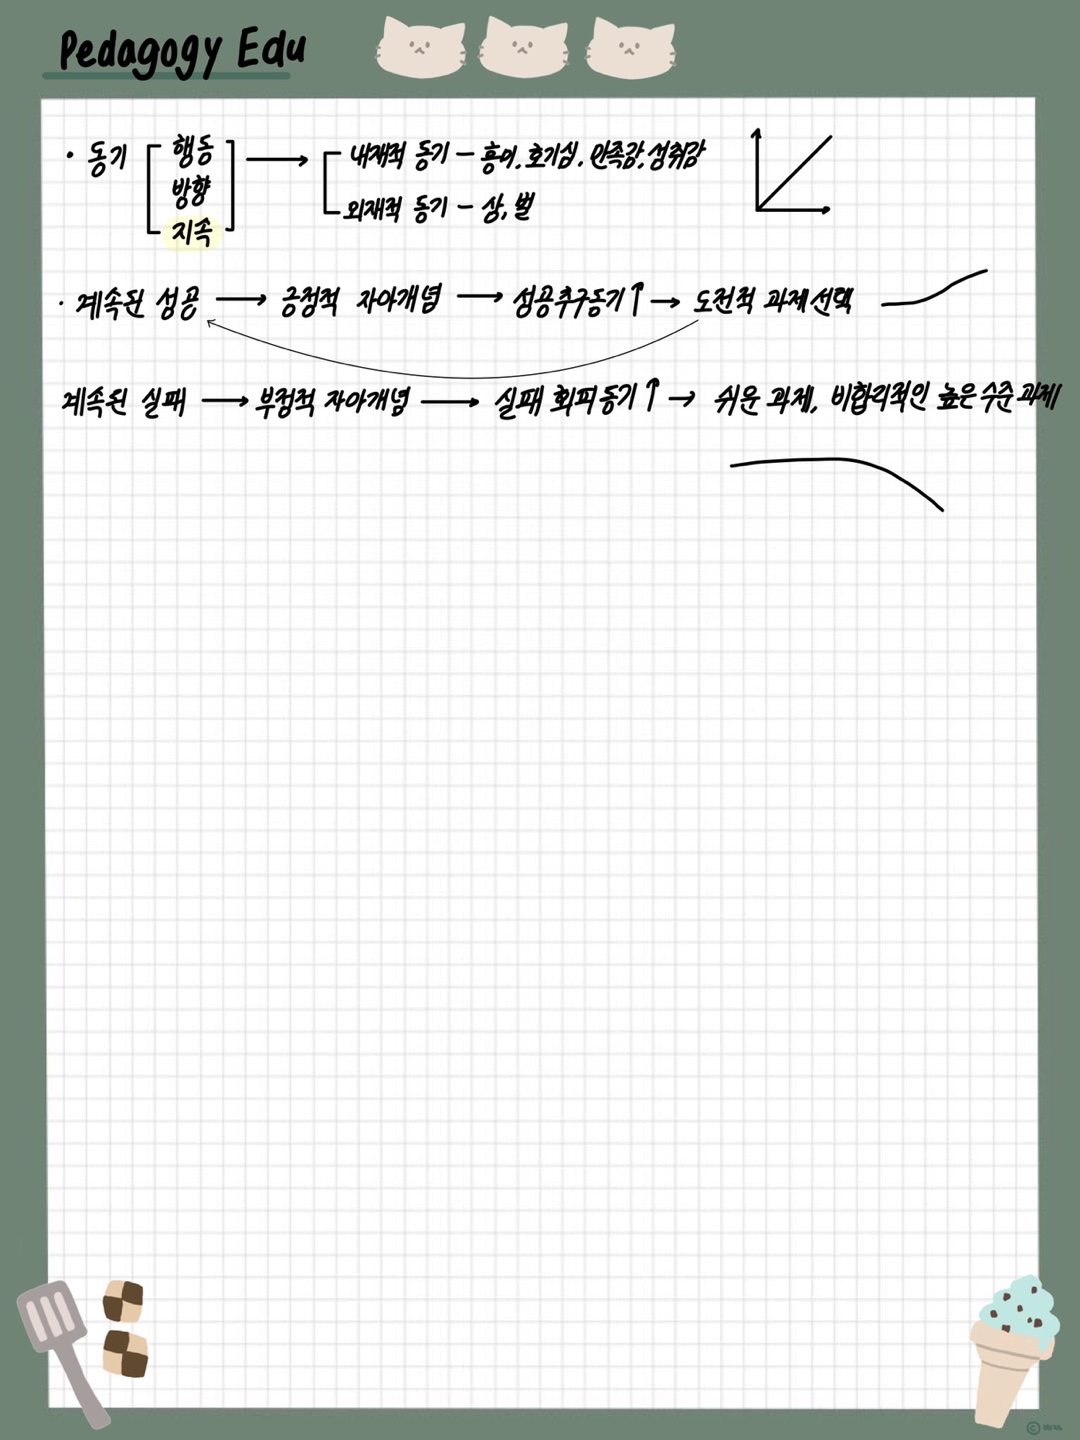 Pedagogy Edu
· 동기 [ 행동 ] → 내재적 동기 – 흥미, 호기심, 만족감, 성취감
방향
외재적 동기 – 상, 벌
지속
· 계속된 성공 → 긍정적 자아개념 → 성공추구동기↑ → 도전적 과제선택
계속된 실패 → 부정적 자아개념 → 실패 회피동기↑ → 쉬운 과제, 비합리적인 높은 수준 과제